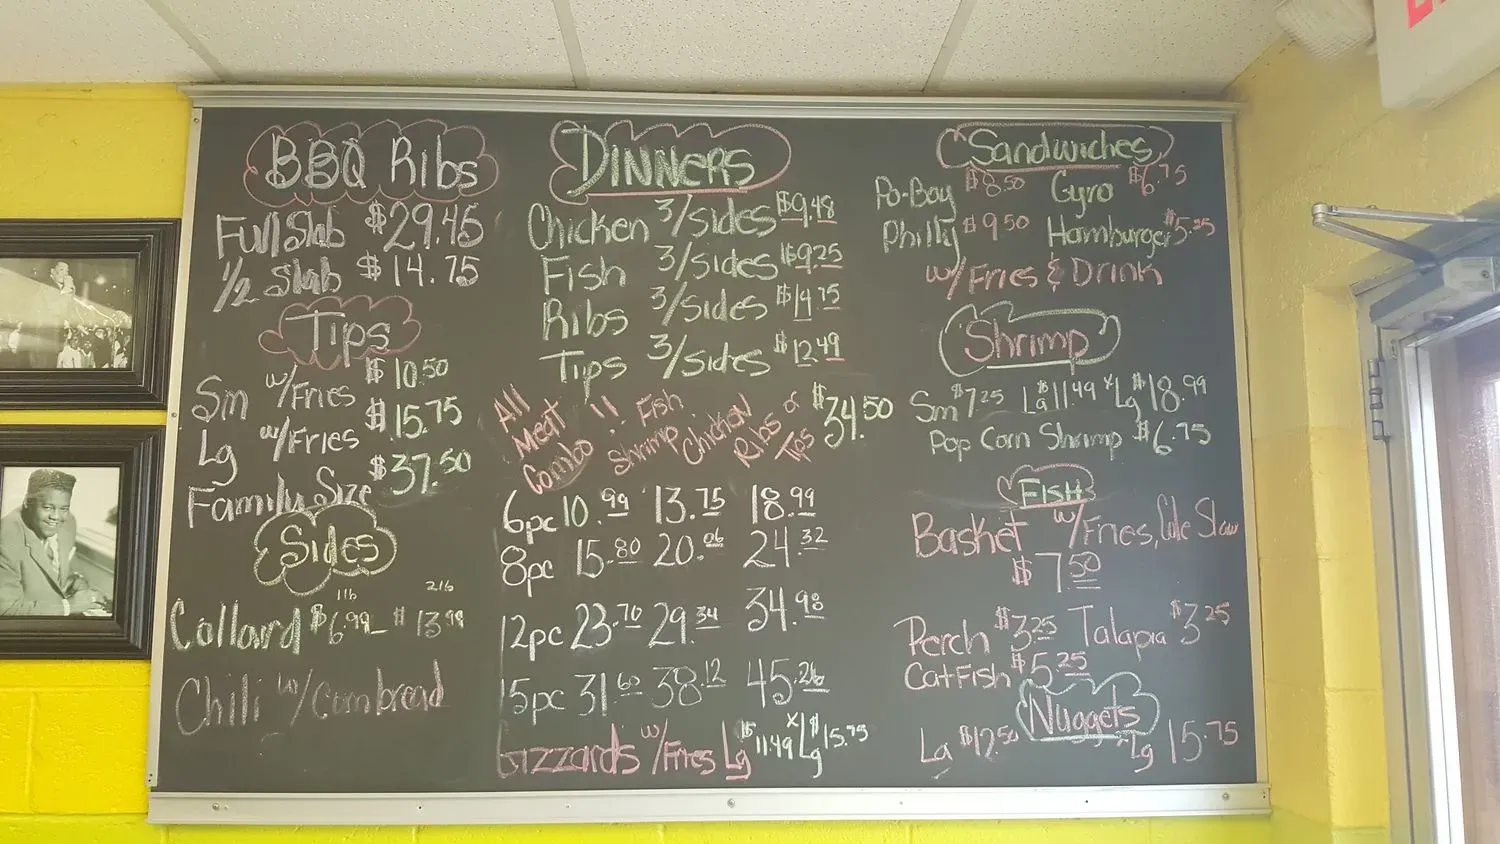 BBQ Ribs
Full Slab $29.45
1/2 Slab $14.75
Tips
Sm w/Fries $10.50
Lg w/Fries $15.75
Family Size $37.50
Sides
1lb 2lb
Collard $6.99 $13.99
Chili w/Cornbread
DINNERS
Chicken 3/sides $9.48
Fish 3/sides $9.25
Ribs 3/sides $14.75
Tips 3/sides $12.49
All Meat Combo !! Fish Shrimp Chicken Ribs or Tips $34.50
6pc 10.99 13.75 18.99
8pc 15.80 20.06 24.32
12pc 23.70 29.34 34.98
15pc 31.60 38.12 45.26
Gizzards w/Fries Lg $11.49 x Lg $15.75
Sandwiches
Po-Boy $8.50 Gyro $6.75
Philly $9.50 Hamburger $5.25
w/Fries & Drink
Shrimp
Sm $7.25 La $11.49 xLg $18.99
Pop Corn Shrimp $6.75
Fish
Basket w/Fries, Cole Slaw
$7.50
Perch $3.25 Talapia $3.25
CatFish $5.25
Nuggets
La $12.50 Lg 15.75